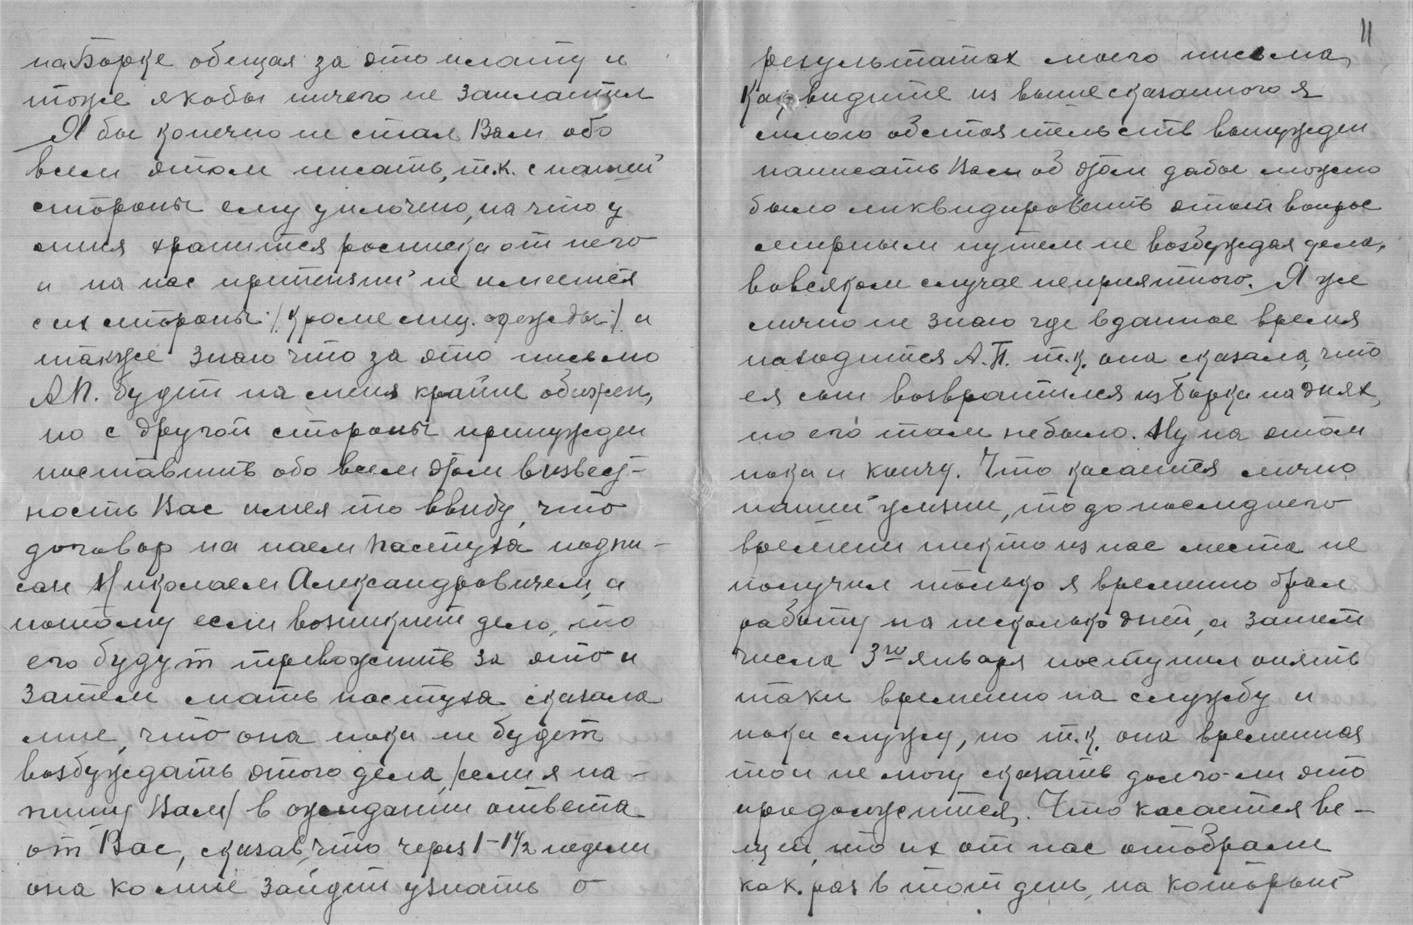 на Борке обещая за это плату и
тоже якобы ничего не заплатил
Я бы конечно не стал Вам обо
всем этом писать, т.к. с нашей
стороны ему уплочено, на что у
меня хранится росписка от него
и на нас притензий не имеется
с их стороны /кроме спец. одежды/ и
также знаю что за это письмо
А.П. будет на меня крайне обижен,
но с другой стороны принужден
поставить обо всем этом в извест-
ность Вас имея то ввиду, что
договор на наем пастуха подпи-
сан Николаем Александровичем, а
потому если возникнит дело, то
его будут тревожить за это и
затем мать пастуха сказала
мне, что она пока не будет
возбуждать этого дела, /если я на-
пишу Вам/ в ожидании ответа
от Вас, сказав, что через 1-1½ недели
она ко мне зайдет узнать о
11
результатах моего письма,
Как видите из выше сказанного я
силою обстоятельств вынужден
написать Вам об этом дабы можно
было ликвидировать этот вопрос
мирным путем не возбуждая дела,
вовсяком случае неприятного. Я же
лично не знаю где вданное время
находится А.П. т.к. она сказала, что
ея сын возвратился из Борка на днях,
но его там небыло. Ну на этом
пока и кончу. Что касается лично
нашей жизни, то до последнего
времени никто из нас места не
получил только я временно брал
работу на несколько дней, а затем
числа 3го января поступил опять
таки временно на службу и
пока служу, но т.к. она временная
то и не могу сказать долго-ли это
продолжится. Что касается ве-
щей, то их от нас отобрали
как. раз в тот день, на который